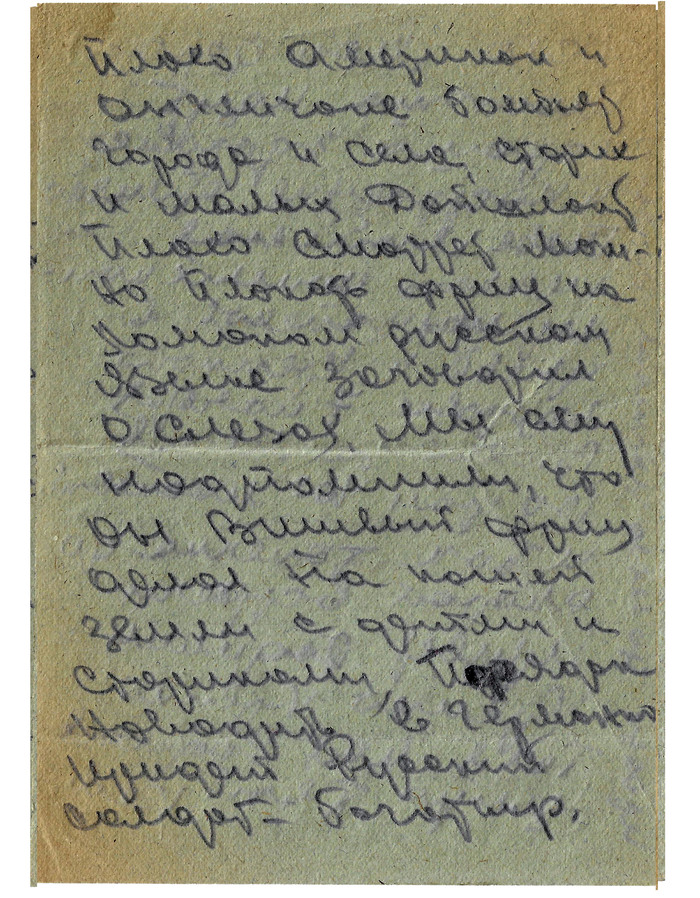 Плохо Американ и
англичане бомбят
города и села, старик
и малых Детишков
Плохо Смотрет мож-
но плокать фриц на
ломаном русском
языке заговорил
о слезах. Мы ему
надпомнили, что
он Вшивый фриц
делал На нашей
земли с детями и
стариками, Порядок
Наводить в Германию
придет русский
солдат - богатыр.